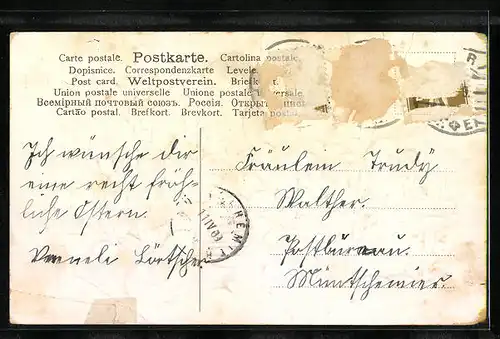 Carte postale. Postkarte. Cartolina postale.
Dopisnice. Correspondenzkarte Levele
Post card. Weltpostverein. Brief
Union postale universelle Unione postale
Всемірный почтовый союзъ. Россія.
Cartão postal. Brefkort. Brevkort. Tarjeta postal.
Ich wünsche dir
eine recht fröh-
liche Ostern.
Vreneli Lörtscher
Fräulein Trudy
Walther.
Postbureau.
Müntschemier.